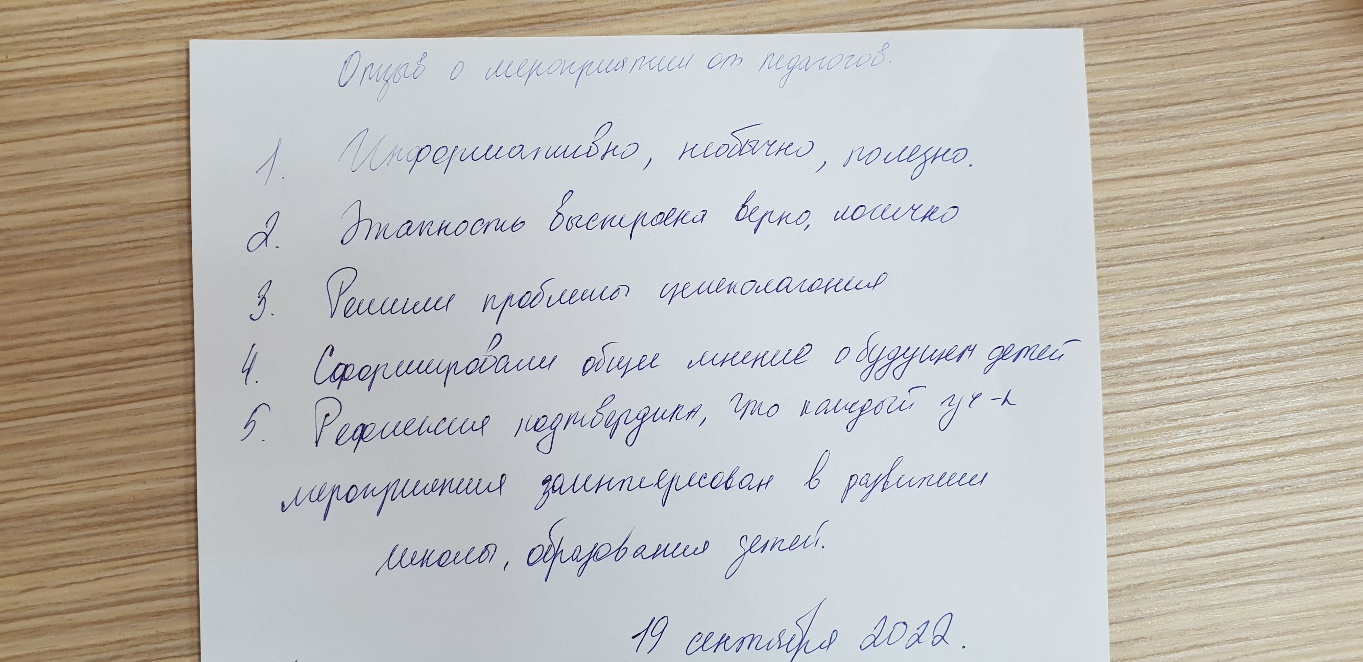 Отзыв о мероприятии от педагогов.
1. Информативно, необычно, полезно.
2. Этапность выстроена верно, логично
3. Решили проблемы целеполагания
4. Сформировали общее мнение о будущем детей
5. Рефлексия подтвердила, что каждый уч-к
мероприятия заинтересован в развитии
школы, образования детей.
19 сентября 2022.